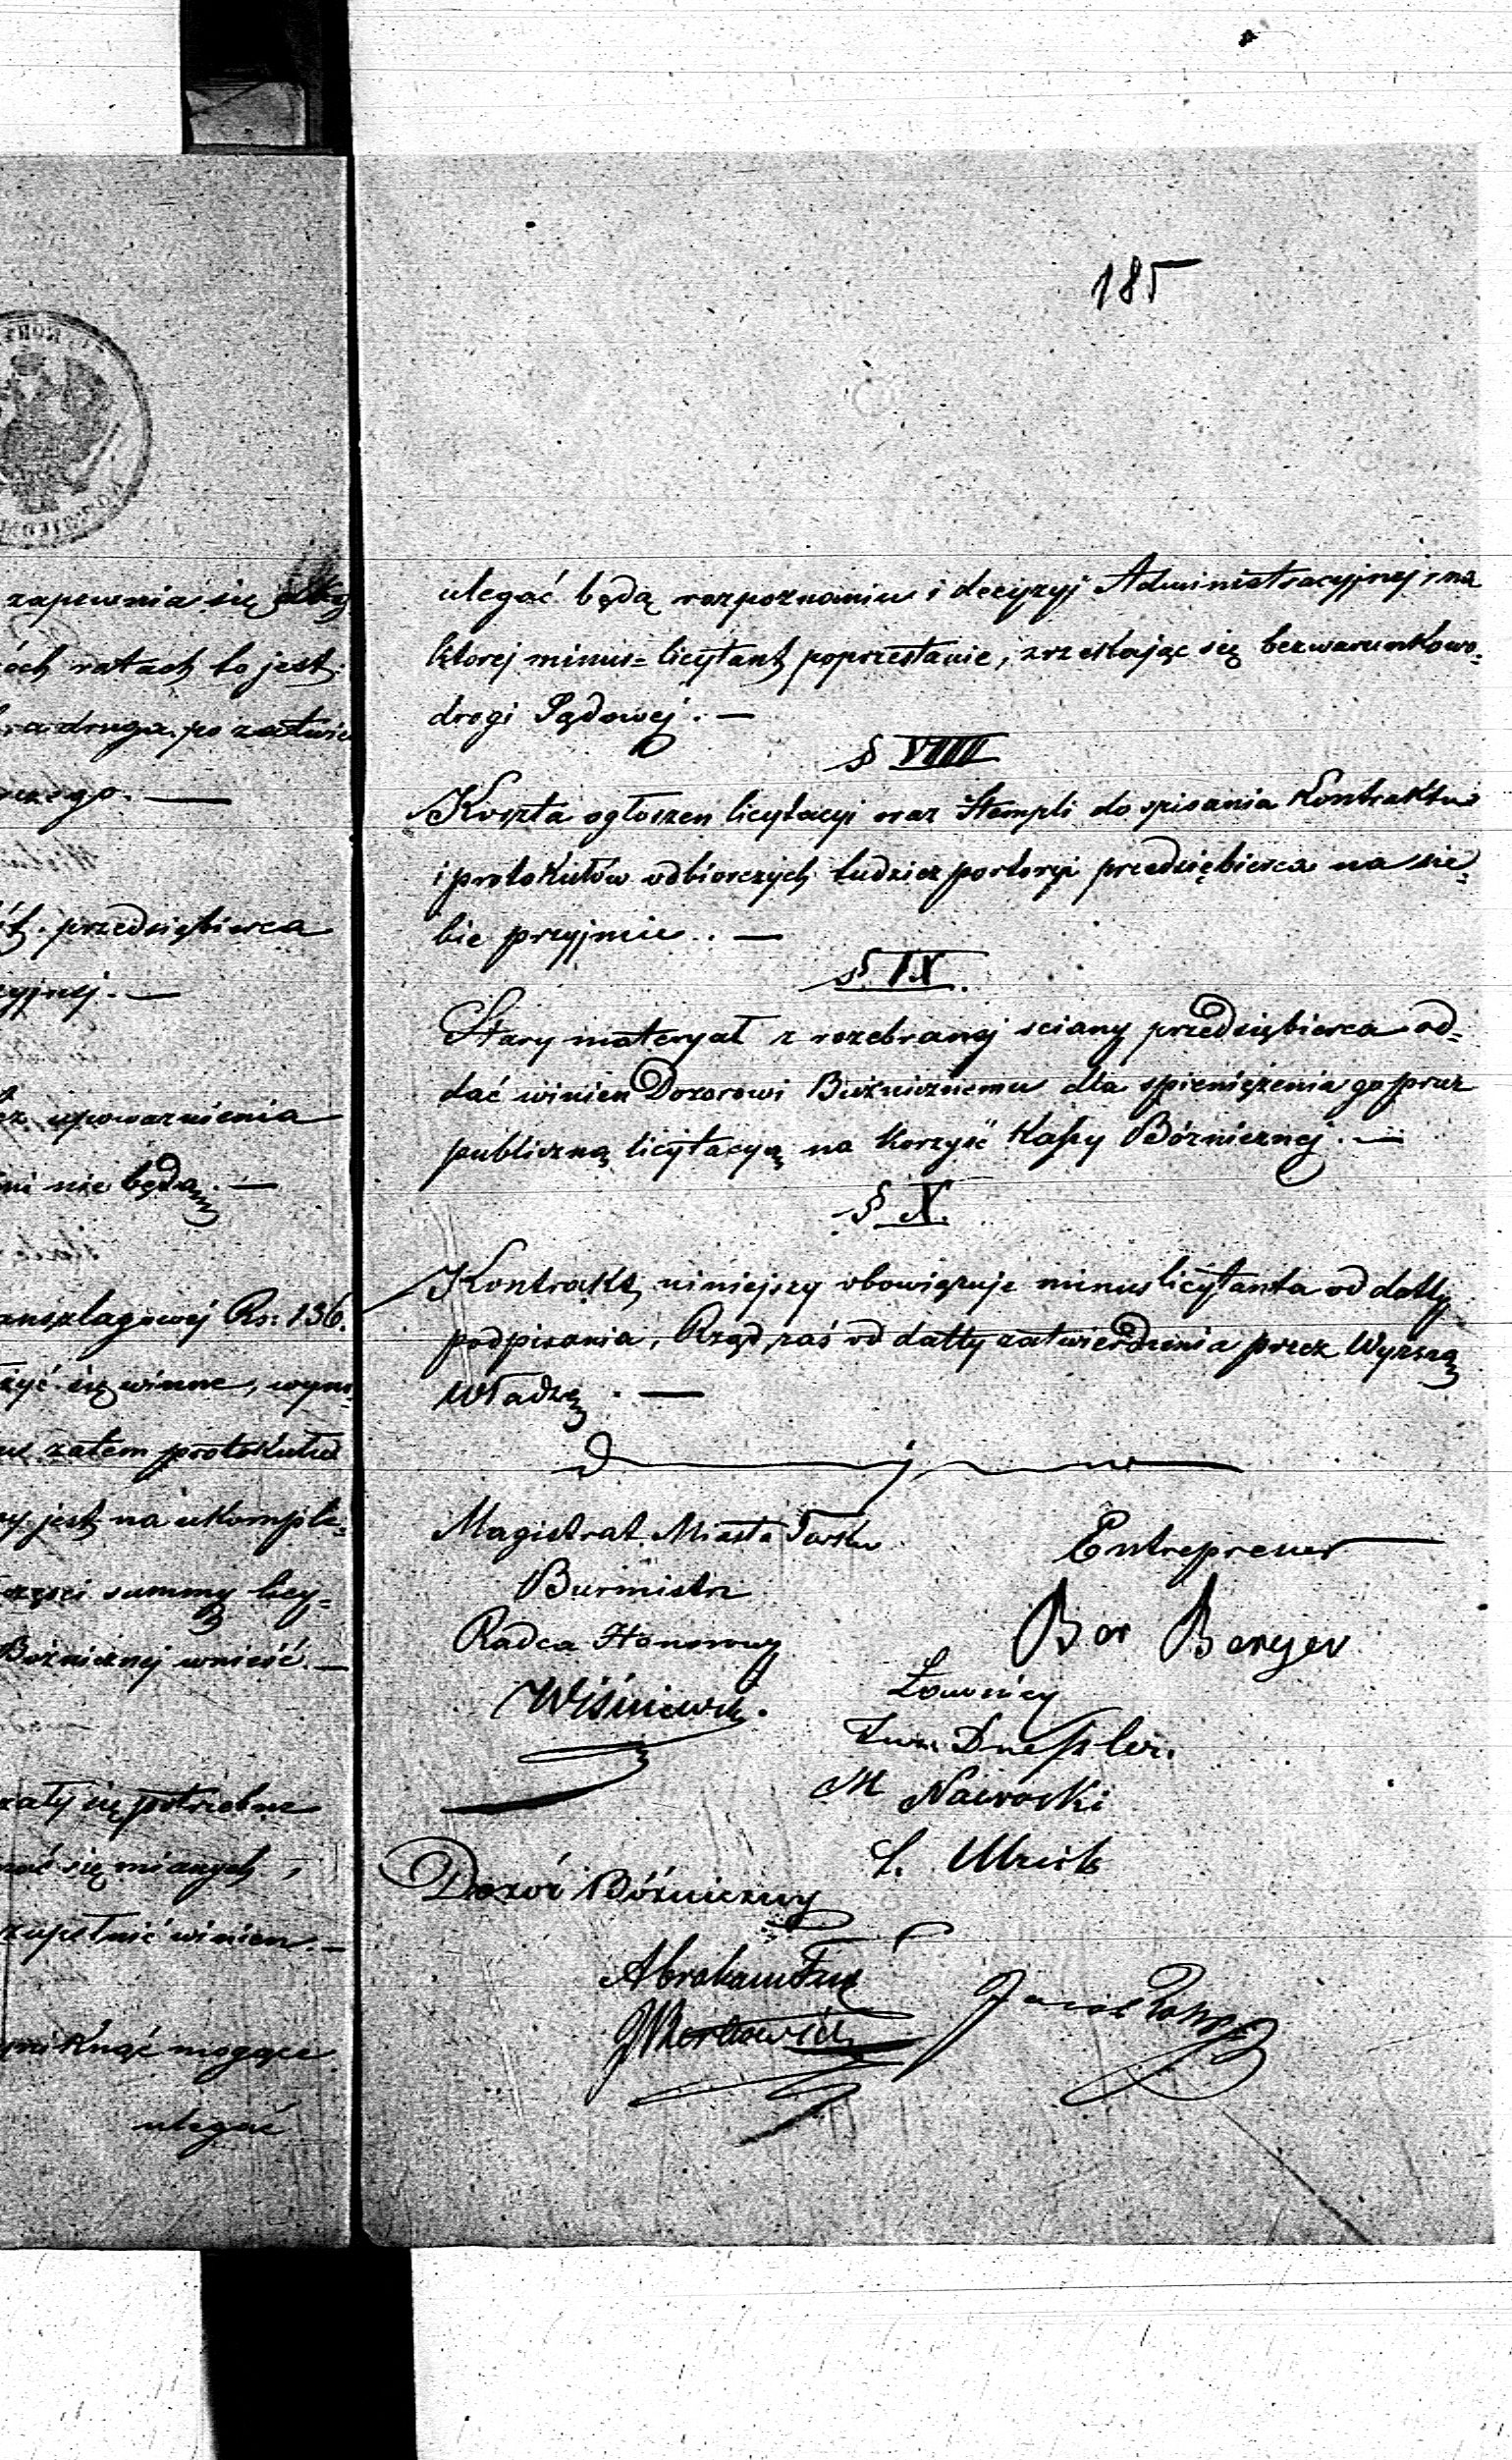 185
zapewnia się
óch ratach to jest
a druga po zatwier
przedsiębierca
cyjnej. —
upoważnienia
ni nie będą. —
anszlagowej Rs: 136.
żyć się winne, wyni-
zatem protokułu
jest na ukomple=
części summy licy=
Bóżnicznej wnieść. —
zały się potrzebne
nać się mianych,
zupełnić winien. —
yniknąć mogące
ulegać
ulegać będą rozpoznaniu i decyzyi Administracyjnej, na
ktorej minus=licytant poprzestanie, zrzekając się bezwarunkowo
drogi Sądowej. —
§ VIIII
Koszta ogłoszen licytacyi oraz Stempli do spisania Kontraktu
i protokułów odbiorczych tudzież portoryi przedsiębierca na sie=
bie przyjmie. —
§ IX.
Stary materyał z rozebranej sciany przedsiębierca od=
dać winien Dozorowi Bużnicznemu dla spieniężenia go przez
publiczną licytacyą na korzyść Kassy Bóżnicznej. —
§ X.
Kontrakt niniejszy obowiązuje minus licytanta od datty
podpisania, Rząd zaś od datty zatwierdzenia przez Wyższą
Władzę. —
Magistrat Miasta
Burmistrz
Radca Honorowy
Wiśniewski.
Entreprener
Ber Berger
Ławnicy
M Nawrocki
Dozór Bóżniczny
Abraham Fux